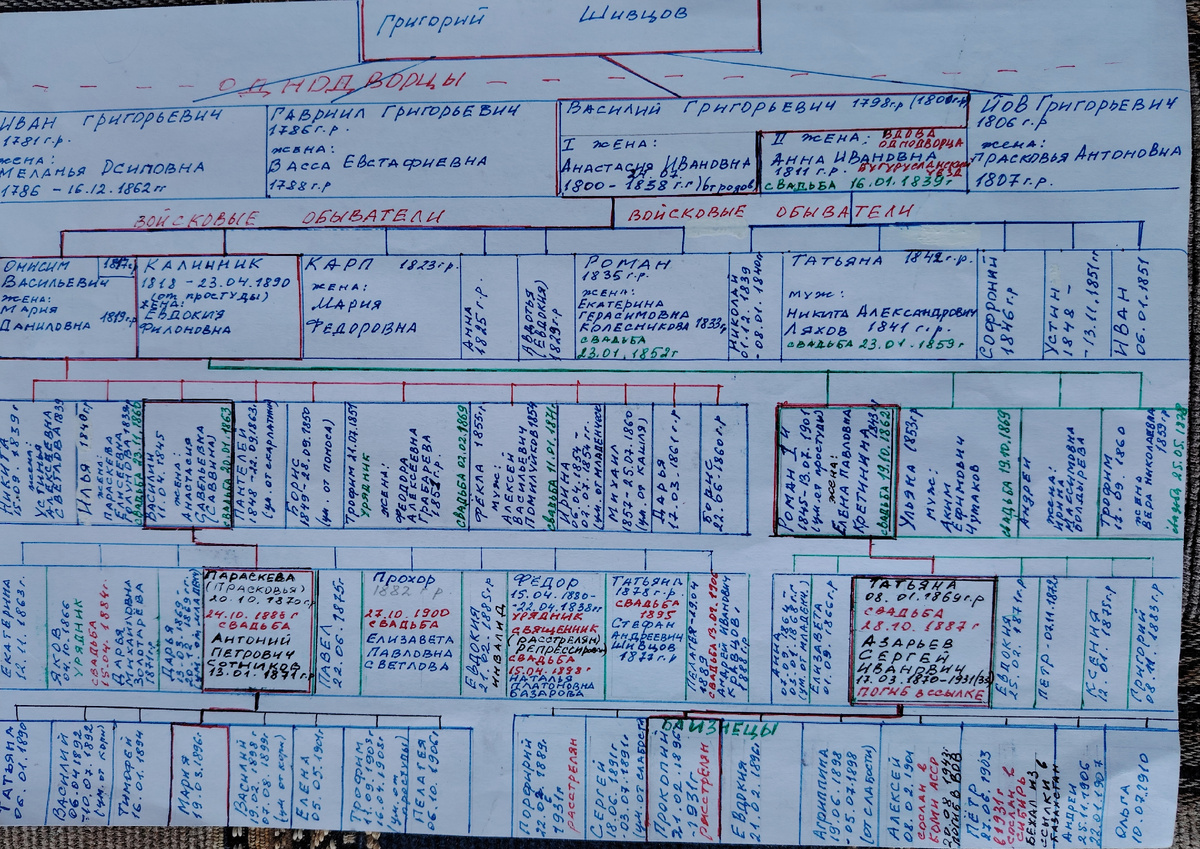 Григорий Шивцов
ОДНОДВОРЦЫ
ИВАН ГРИГОРЬЕВИЧ
1781 г.р.
жена:
МЕЛАНЬЯ ОСИПОВНА
1786 – 16.12.1862гг
ГАВРИИЛ ГРИГОРЬЕВИЧ
1786 г.р.
жена:
ВАССА ЕВСТАФИЕВНА
1788 г.р.
ВАСИЛИЙ ГРИГОРЬЕВИЧ 1798гр (1800гр)
I ЖЕНА:
АНАСТАСИЯ ИВАНОВНА
1800 – 1838 г.г)
II ЖЕНА: ВДОВА
ОДНОДВОРЦА
АННА ИВАНОВНА
1811 г.р. БУГУРУСЛАНСКИЙ
УЕЗД
СВАДЬБА 16.01.1839г
ЙОВ ГРИГОРЬЕВИЧ
1806 г.р.
жена:
ПРАСКОВЬЯ АНТОНОВНА
1807 г.р.
ВОЙСКОВЫЕ ОБЫВАТЕЛИ
ВОЙСКОВЫЕ ОБЫВАТЕЛИ
ОНИСИМ
ВАСИЛЬЕВИЧ
жена:
МАРИЯ 1819гр
ДАНИЛОВНА
КАЛИННИК
1818 – 23.04.1890
(от простуды)
ЖЕНА:
ЕВДОКИЯ
ФИЛОНОВНА
КАРП 1823г.р.
ЖЕНА:
МАРИЯ
ФЕДОРОВНА
АННА
1825 г.р.
АВДОТЬЯ
(ЕВДОКИЯ)
1829г.р
РОМАН
1835 г.р.
ЖЕНА:
ЕКАТЕРИНА
ГЕРАСИМОВНА
КОЛЕСНИКОВА 1833г.р
СВАДЬБА
23.01.1852г
НИКОЛАЙ
01.12.1839
-08.01.1840гг
ТАТЬЯНА 1842г.р.
МУЖ:
НИКИТА АЛЕКСАНДРОВИЧ
ЛЯХОВ 1841 г.р.
СВАДЬБА 23.01.1859г.
СОФРОНИЙ
1846г.р
УСТИН
1848 –
-13.11.1851гг
ИВАН
06.01.1851
НИКИТА
15.09.1839г
жена:
УСТИНЬЯ
АЛЕКСЕЕВНА
СВЕТЛОВА 1839
СВАДЬБА
ИЛЬЯ 1840г.р
жена:
ПАРАСКЕВА
ЕЛИСЕЕВНА
СВАДЬБА 23.11.1860
ВАСИЛИЙ
11.04.1845
ЖЕНА:
АНАСТАСИЯ
САВЕЛЬЕВНА
СВАДЬБА 20.01.1863
ПАНТЕЛЕЙ
1848 – 22.09.1863г.
(ум. от скарлатины)
БОРИС
1849-28.09.1850
(ум. от поноса)
ТРОФИМ
УРЯДНИК
жена:
ФЕОДОРА
АЛЕКСЕЕВНА
СВАДЬБА 02.02.1869
ФЕКЛА 1855г.р
МУЖ:
АЛЕКСЕЙ
ВАСИЛЬЕВИЧ
СВАДЬБА 11.01.1871
ИРИНА
(ум. от младенческ)
МИХАИЛ
1857-25.07.1860
(ум. от кашля)
ДАРЬЯ
17.03.1861г.р
БОРИС
22.06.1860г.р
РОМАН I й
1845-13.07.1901
(ум. от простуды)
ЖЕНА:
ЕЛЕНА ПАВЛОВНА
КРЕТИНИНА
СВАДЬБА 19.10.1862
УЛЬЯНА 1853г.р
МУЖ:
АКИМ
ЕФИМОВИЧ
ЧУТАКОВ
СВАДЬБА 19.10.1869
АНДРЕЙ
ЖЕНА:
ИРИНА
МАКСИМОВНА
БОЛДЫРЕВА
ТРОФИМ
13.09.1860
ЖЕНА
ВЕРА НИКОЛАЕВНА
1859г.р.
СВАДЬБА 25.05.1878
ЕКАТЕРИНА
12.11.1863г.
ЯКОВ
04.10.1866
УРЯДНИК
СВАДЬБА
15.04.1884г.
ДАРЬЯ
МИХАЙЛОВНА
ЗОЛОТАРЕВА
1871г.р
ДАРЬЯ
ПАРАСКЕВА
(ПРАСКОВЬЯ)
20.10.1870г.р
24.10.1888г
СВАДЬБА
АНТОНИЙ
ПЕТРОВИЧ
СОТНИКОВ
13.01.1871г.р
ПАВЕЛ
22.06.1875г.
ПРОХОР
1882 г.р
27.10.1900
СВАДЬБА
ЕЛИЗАВЕТА
ПАВЛОВНА
СВЕТЛОВА
ЕВДОКИЯ
21.02.1885г.р
ИНВАЛИД
ФЕДОР
15.04.1880-
-22.04.1938гг
УРЯДНИК
СВЯЩЕННИК
(РАССТРЕЛЯН)
РЕПРЕССИРОВАН
СВАДЬБА
15.04.1898г
НАТАЛЬЯ
ПЛАТОНОВНА
БАЗАРОВА
ТАТЬЯНА
1878 г.р.
СВАДЬБА
1895
СТЕФАН
АНДРЕЕВИЧ
ШИВЦОВ
1877г.р
ПЕЛАГЕЯ
СВАДЬБА 13.01.1906
АНДРЕЙ ИВАНОВИЧ
КРАВЦОВ
АННА
(ум. от младенч.)
ЕЛИЗАВЕТА
01.09.1866г.р
ТАТЬЯНА
08.01.1869г.р
СВАДЬБА
28.10.1887г
АЗАРЬЕВ
СЕРГЕЙ
ИВАНОВИЧ
17.03.1870-1931(32)
ПОГИБ В ССЫЛКЕ
ЕВДОКИЯ
25.02.1871г.р
ПЕТР
КСЕНИЯ
12.01.1875г.р
ГРИГОРИЙ
08.11.1883г.р
БАИЗНЕЦЫ
ТАТЬЯНА
06.01.1890
ВАСИЛИЙ
06.04.1892
-10.07.1892
(ум. от кори)
ТИМОФЕЙ
16.01.1894
МАРИЯ
19.03.1896
ВАСИЛИЙ
(ум. от кори)
ЕЛЕНА
05.05.1901г
ТРОФИМ
11.09.1903г
16.04.1908г
(от простуды)
ПЕЛАГЕЯ
06.10.1906г
ПОРФИРИЙ
22.02.1889.
1931г
РАССТРЕЛЯН
СЕРГЕЙ
18.09.1891г
-03.07.1891г
(ум. от слабости)
ПРОКОПИЙ
21.02.1896
-1931г.
РАССТРЕЛЯН
ЕВДОКИЯ
21.02.1896г
АГРИППИНА
19.06.1898
-05.07.1898
(ОТ СЛАБОСТИ)
АЛЕКСЕЙ
08.02.1901
СОСЛАН В
КОМИ АССР
20.08.1943г
ПОГИБ В ВОВ
ПЁТР
02.06.1903
в 1931г
СОСЛАН В
СИБИРЬ
БЕЖАЛ ИЗ
ССЫЛКИ В
КАЗАХСТАН
АНДРЕЙ
25.11.1906
22.01.1907
ОЛЬГА
10.07.1910